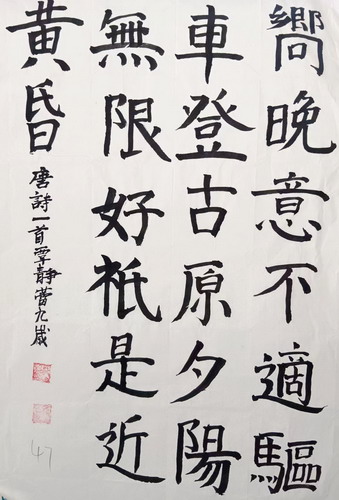 嚮晚意不適驅
車登古原夕陽
無限好祇是近
黃昏
唐詩一首覃靜蕾九歲
47